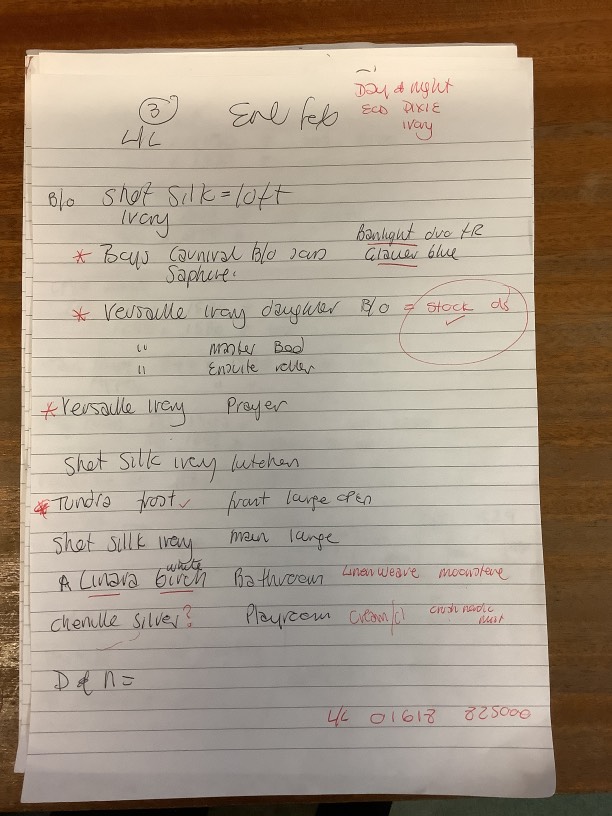 Day & night
ECO DIXIE
ivory
3
L/L
End feb
B/o Shot Silk = loft
Ivory
Banlight duo FR
* Boys Carnival B/o
Glacier blue
Saphire.
* Versaille Ivory daughter B/O = Stock
" Master Bed
" Ensuite roller
* Versaille Ivory Prayer
Shot Silk ivory kitchen
* Tundra frost ✓ front large open
Shot silk ivory main large
white
A Linara birch Bathroom Linen weave moonstone
Chenille silver? Playroom cream/cl crush
D & N =
L/L 01618 825000